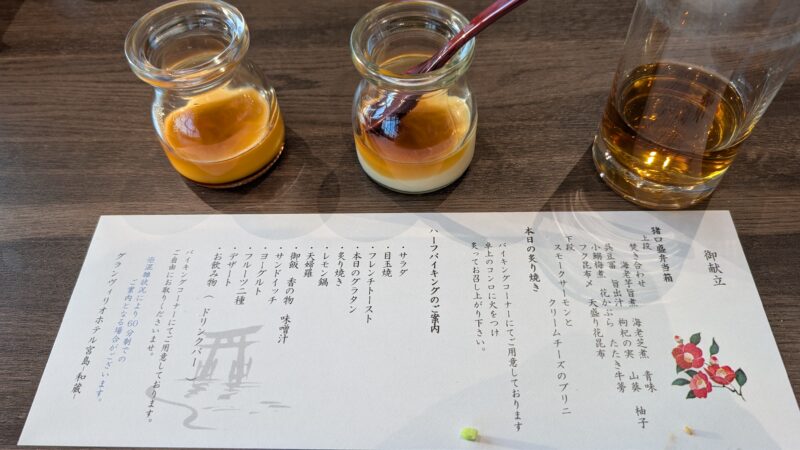 御献立
猪口盛弁当箱
上段
焚き合わせ 海老芝煮 青味
海老芋旨煮 枸杞の実 柚子
呉豆冨 旨出汁 山葵
小鯛梅煮 花かぶら たたき牛蒡
フク昆布〆 天盛り花昆布
下段
スモークサーモンと
クリームチーズのブリニ
本日の炙り焼き
バイキングコーナーにてご用意しております
卓上のコンロに火をつけ
炙ってお召し上がり下さい。
ハーフバイキングのご案内
・サラダ
・目玉焼
・フレンチトースト
・本日のグラタン
・炙り焼き
・レモン鍋
・天婦羅
・御飯 香の物 味噌汁
・サンドイッチ
・ヨーグルト
・フルーツ二種
・デザート
・お飲み物 (ドリンクバー)
バイキングコーナーにてご用意しております。
ご自由にお取りくださいませ。
※混雑状況により60分制での
ご案内となる場合がございます。
グランヴィリオホテル宮島 和蔵